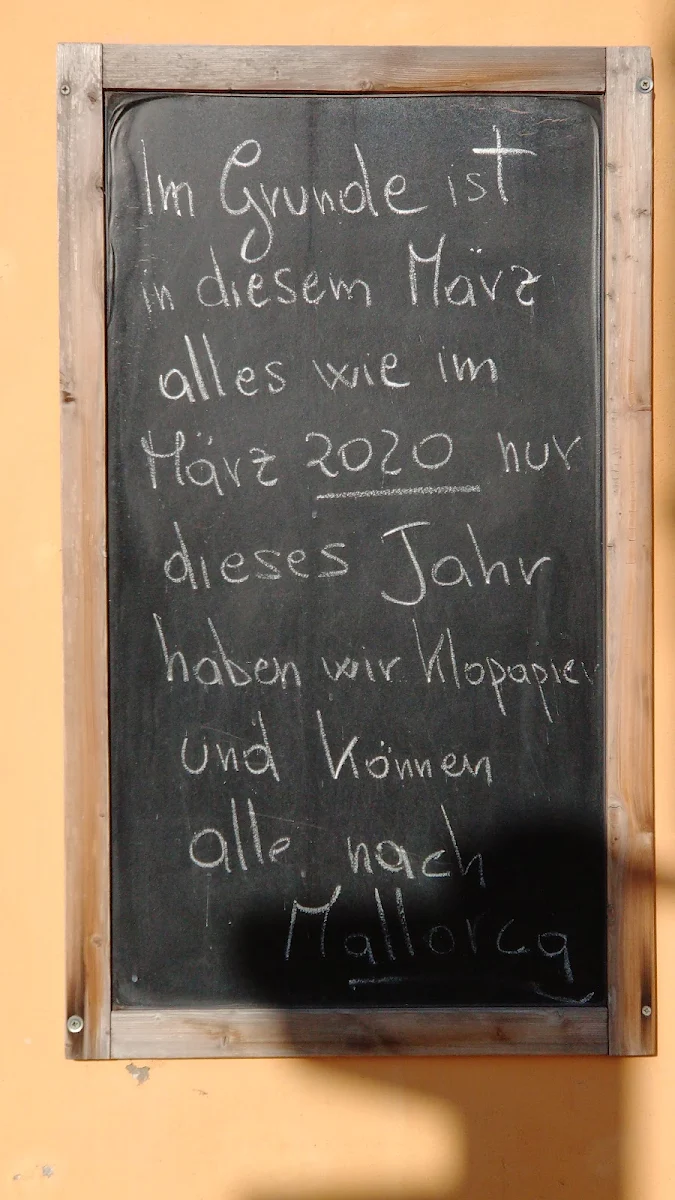 Im Grunde ist
in diesem März
alles wie im
März 2020 nur
dieses Jahr
haben wir Klopapier
und können
alle nach
Mallorca